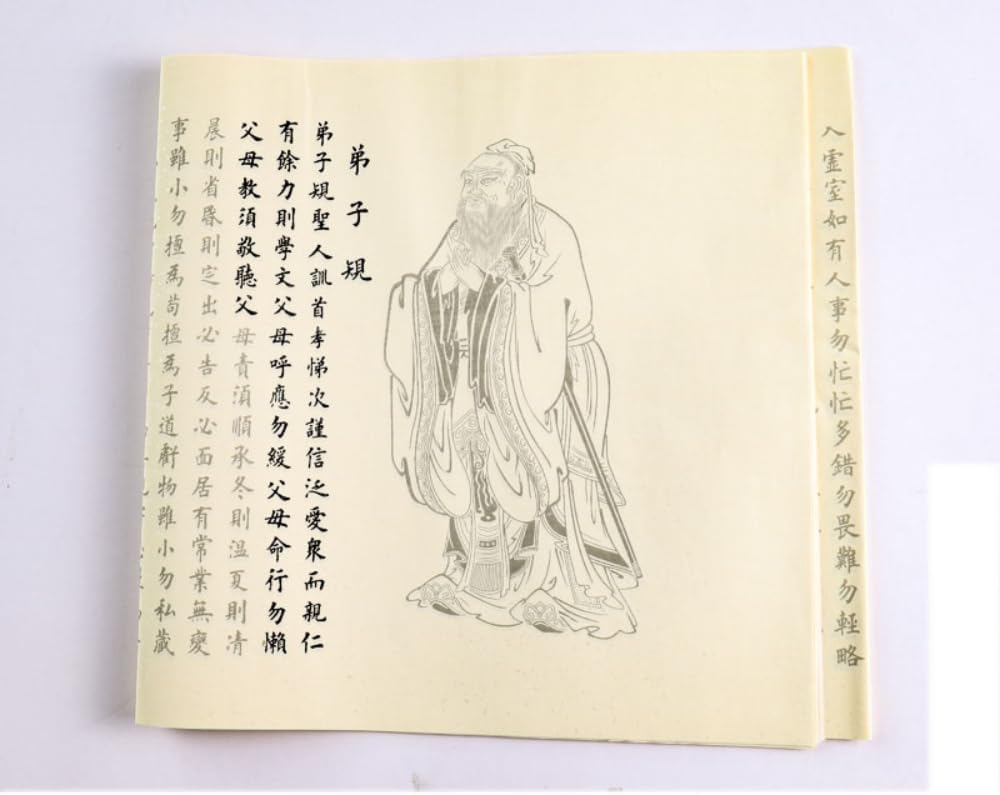 入虛室如有人事勿忙忙多錯勿畏難勿輕略
弟子規
弟子規聖人訓首孝悌次謹信泛愛眾而親仁
有餘力則學文父母呼應勿緩父母命行勿懶
父母教須敬聽父母責須順承冬則溫夏則清
晨則省昏則定出必告反必面居有常業無變
事雖小勿擅為苟擅為子道虧物雖小勿私藏